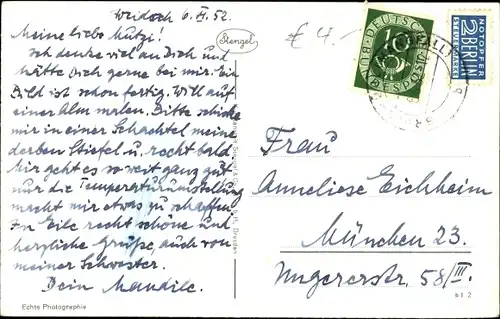 6. II. 52.
Meine liebe Mutzi!
Ich denke viel an Dich und
hätte Dich gerne bei mir. Ein
Bild ist schon fertig. Will auf
einer Alm malen. Bitte schicke
mir in einer Schachtel meine
derben Stiefel u. recht bald
Mir geht es so weit ganz gut
nur die Temperaturumstellung
macht mir etwas zu schaffen.
In Eile recht schöne und
herzliche Grüße, auch von
meiner Schwester.
Dein
Echte Photographie
Stengel
Dresden
€ 4.-
DEUTSCHE BUNDESPOST
10
NOTOPFER
2 BERLIN
STEUERMARKE
Frau
Anneliese Eichheim
München 23.
Ungererstr. 58/III.
b t 2